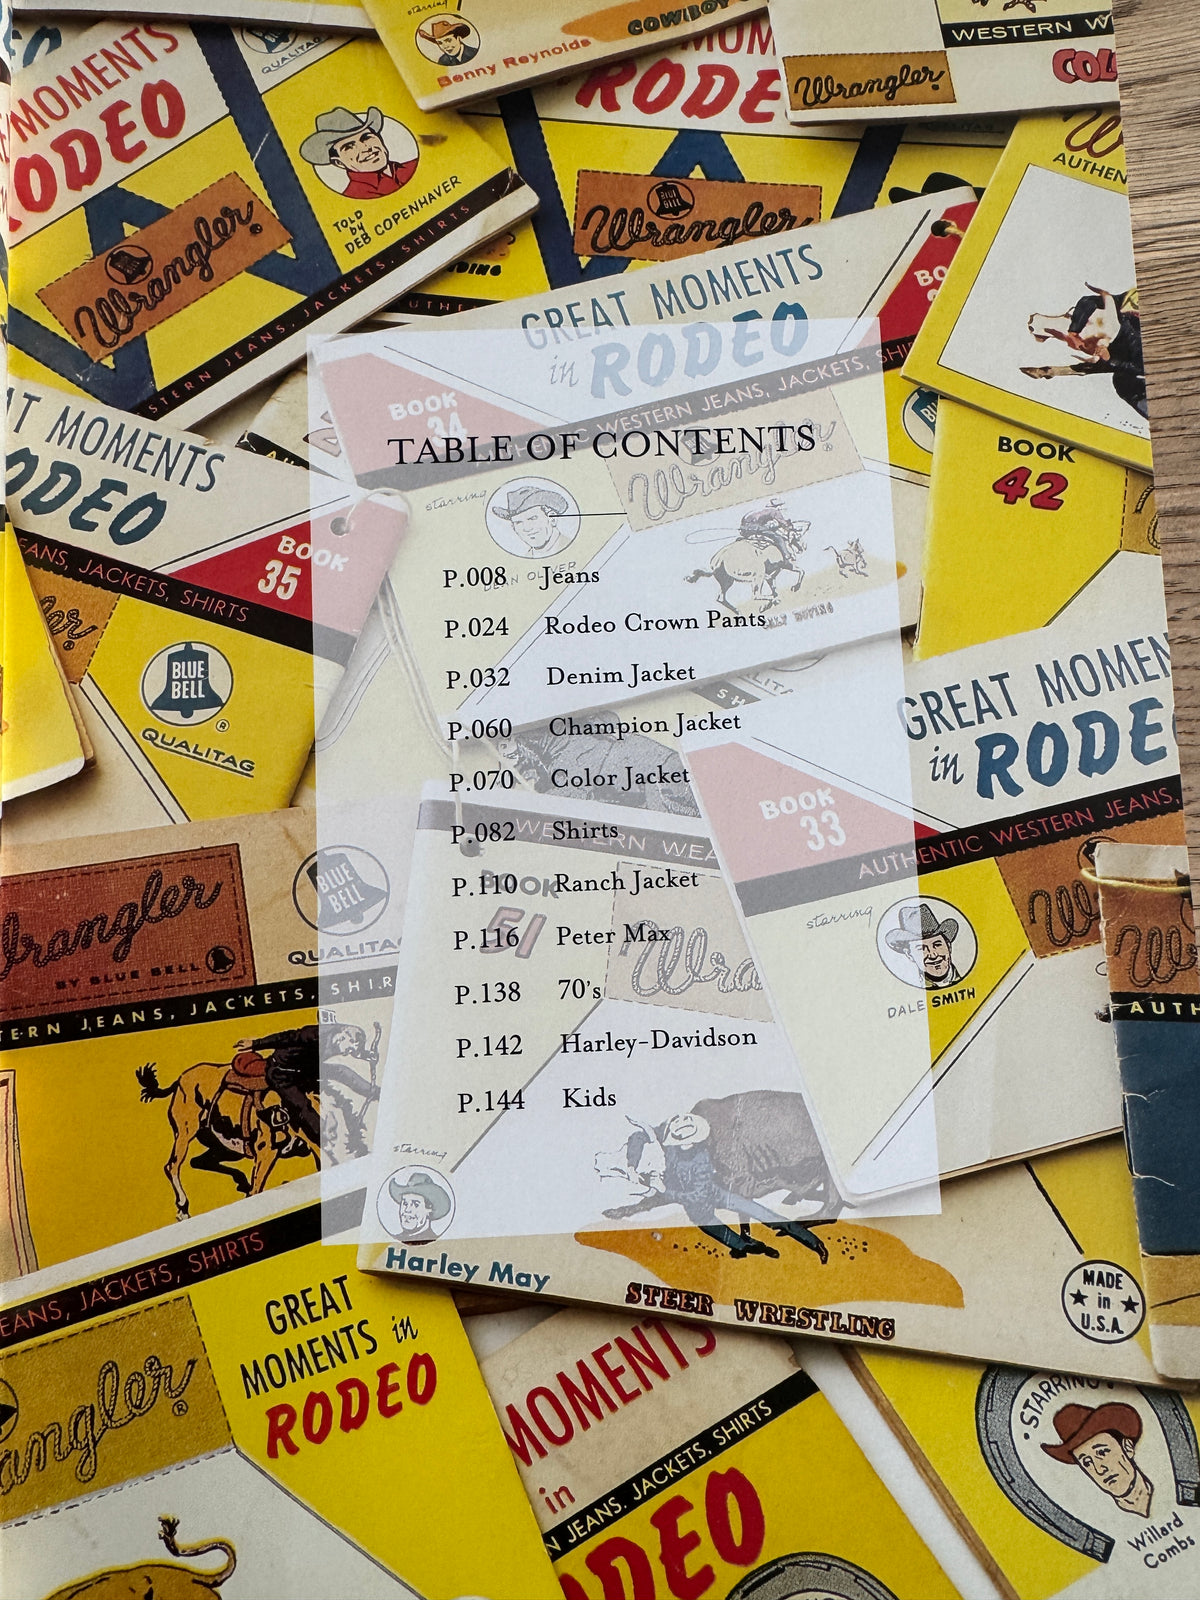 MOMENTS
RODEO
QUALITAG
TOLD
by
DEB COPENHAVER
Wrangler
STERN JEANS, JACKETS, SHIRTS
starring
Benny Reynolds
COWBOY
MOM
RODE
BLUE
BELL
Wrangler
WESTERN W
Wrangler
COL
AUTHEN
GREAT MOMENTS
in RODEO
BOOK
34
AUTHENTIC WESTERN JEANS, JACKETS, SHI
Wrang
starring
DEAN OLIVER
CALF ROPING
BOOK
42
TABLE OF CONTENTS
P.008 Jeans
P.024 Rodeo Crown Pants
P.032 Denim Jacket
P.060 Champion Jacket
P.070 Color Jacket
P.082 Shirts
P.110 Ranch Jacket
P.116 Peter Max
P.138 70's
P.142 Harley-Davidson
P.144 Kids
AT MOMENTS
ODEO
EANS, JACKETS, SHIRTS
BOOK
35
BLUE
BELL
®
QUALITAG
Wrangler
BY BLUE BELL
BLUE
BELL
QUALITAG
TERN JEANS, JACKETS, SHIR
GREAT MOMEN
in RODE
BOOK
33
AUTHENTIC WESTERN JEANS,
starring
DALE SMITH
WESTERN WEA
BOOK
51
Wra
AUTH
starring
Harley May
STEER WRESTLING
MADE
in
U.S.A.
EANS, JACKETS, SHIRTS
angler
®
GREAT
MOMENTS in
RODEO
MOMENTS
in
N JEANS, JACKETS, SHIRTS
ODEO
STARRING
Willard
Combs